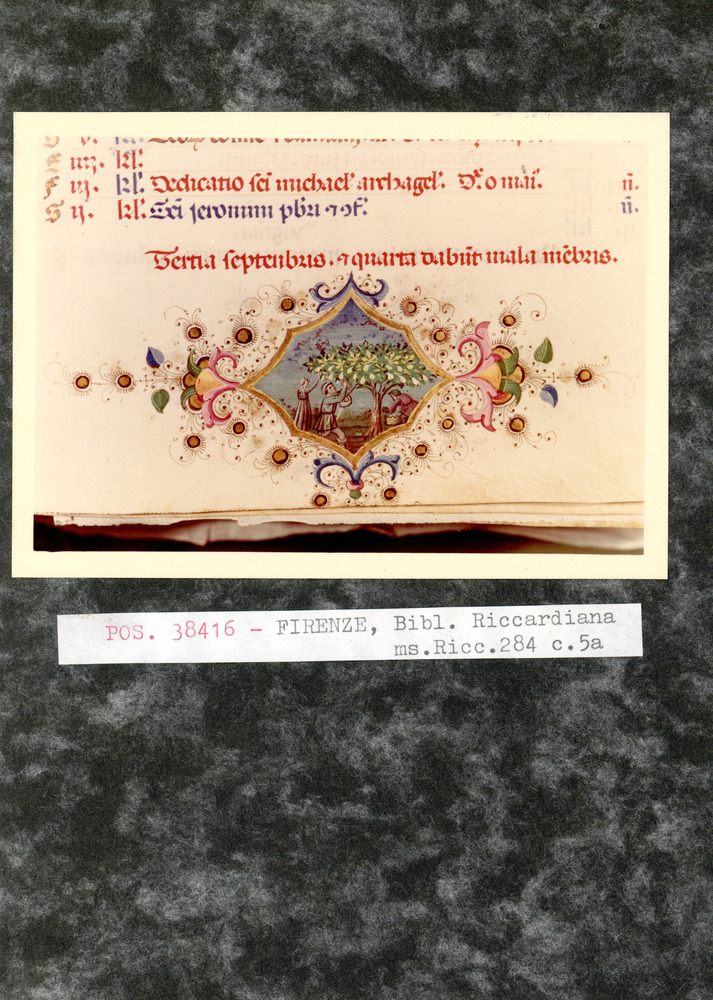 E iiij. kl'.
F iij. kl'. Dedicatio sc̄i michael' archāgel'. Dx̄. o mai'. ii.
G ij. kl'. Sc̄i jeronimi pbr̄i ⁊ ꝯf'. ii.
Tertia septenbris. ⁊ quarta dabūt mala mēbris.
POS. 38416 - FIRENZE, Bibl. Riccardiana
ms.Ricc.284 c.5a